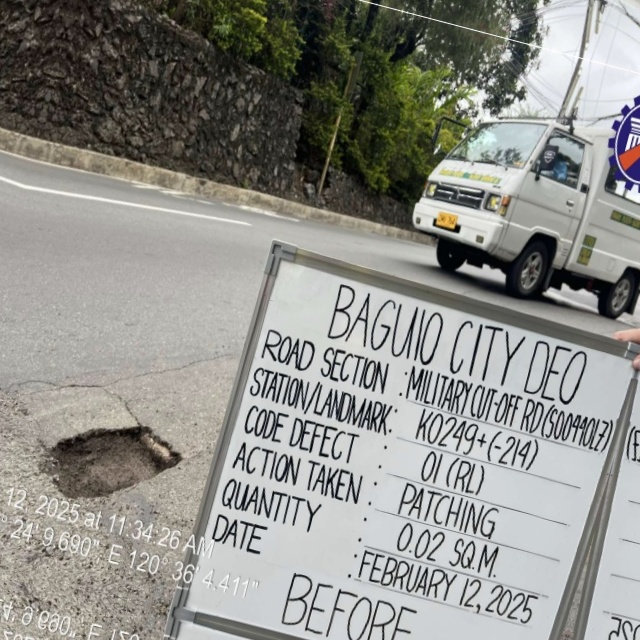 BAGUIO CITY DEO
ROAD SECTION : MILITARY CUT-OFF RD (S00440LZ)
STATION/LANDMARK: K0249+(-214)
CODE DEFECT : 01 (RL)
ACTION TAKEN : PATCHING
QUANTITY : 0.02 SQ.M.
DATE : FEBRUARY 12, 2025
BEFORE
12, 2025 at 11:34:26 AM
24' 9.690", E 120° 36' 4.411"